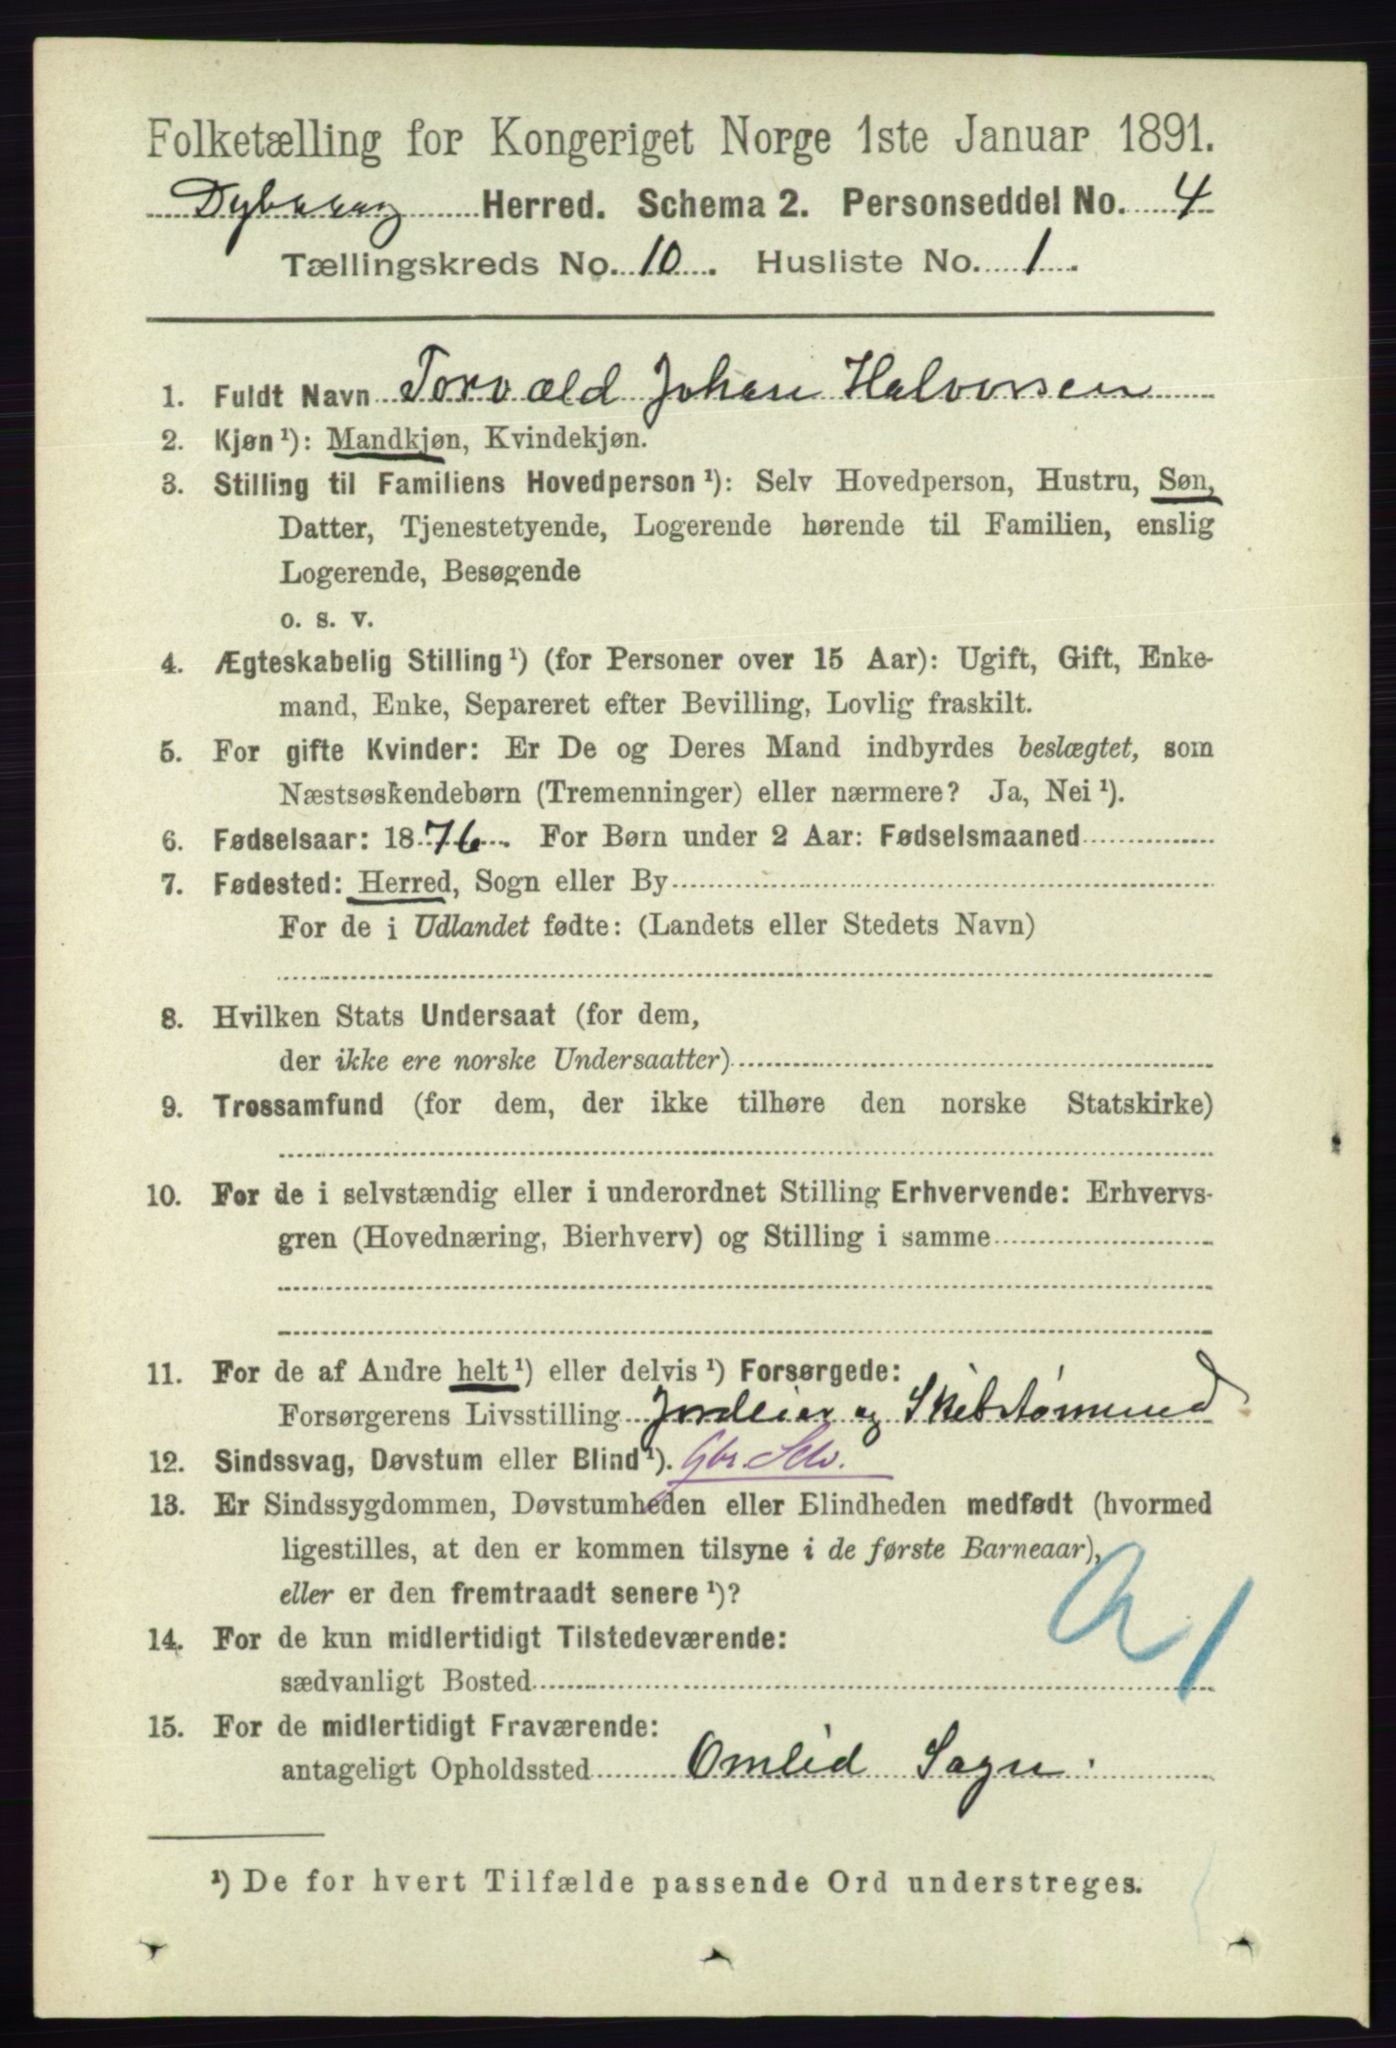 Folketælling for Kongeriget Norge 1ste Januar 1891.
Dybvaag Herred. Schema 2. Personseddel No. 4
Tællingskreds No. 10. Husliste No. 1.
1. Fuldt Navn Torvald Johan Halvorsen
2. Kjøn ¹): Mandkjøn, Kvindekjøn.
3. Stilling til Familiens Hovedperson ¹): Selv Hovedperson, Hustru, Søn,
Datter, Tjenestetyende, Logerende hørende til Familien, enslig
Logerende, Besøgende
o. s. v.
4. Ægteskabelig Stilling ¹) (for Personer over 15 Aar): Ugift, Gift, Enke-
mand, Enke, Separeret efter Bevilling, Lovlig fraskilt.
5. For gifte Kvinder: Er De og Deres Mand indbyrdes beslægtet, som
Næstsøskendebørn (Tremenninger) eller nærmere? Ja, Nei ¹).
6. Fødselsaar: 1876. For Børn under 2 Aar: Fødselsmaaned
7. Fødested: Herred, Sogn eller By
For de i Udlandet fødte: (Landets eller Stedets Navn)
8. Hvilken Stats Undersaat (for dem,
der ikke ere norske Undersaatter)
9. Trossamfund (for dem, der ikke tilhøre den norske Statskirke)
10. For de i selvstændig eller i underordnet Stilling Erhvervende: Erhvervs-
gren (Hovednæring, Bierhverv) og Stilling i samme
11. For de af Andre helt ¹) eller delvis ¹) Forsørgede:
Forsørgerens Livsstilling Jordeier og Skibstømmend
12. Sindssvag, Døvstum eller Blind ¹). Gbr. Selv.
13. Er Sindssygdommen, Døvstumheden eller Blindheden medfødt (hvormed
ligestilles, at den er kommen tilsyne i de første Barneaar),
eller er den fremtraadt senere ¹)?
14. For de kun midlertidigt Tilstedeværende:
sædvanligt Bosted
15. For de midlertidigt Fraværende:
antageligt Opholdssted Omlid Sogn.
¹) De for hvert Tilfælde passende Ord understreges.